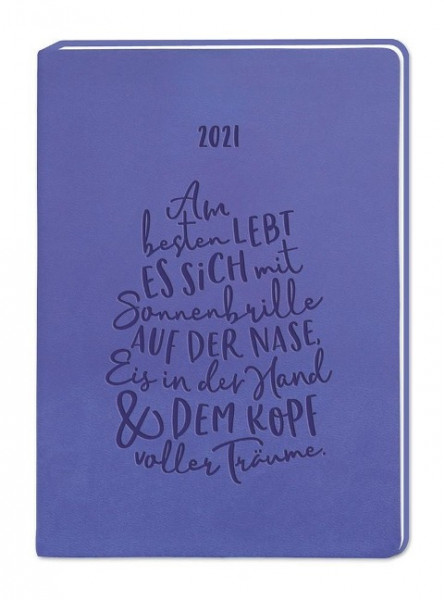 2021
Am
besten LEBT
ES SiCH mit
Sonnenbrille
AUF DER NASE,
Eis in der Hand
& DEM KOPF
voller Träume.